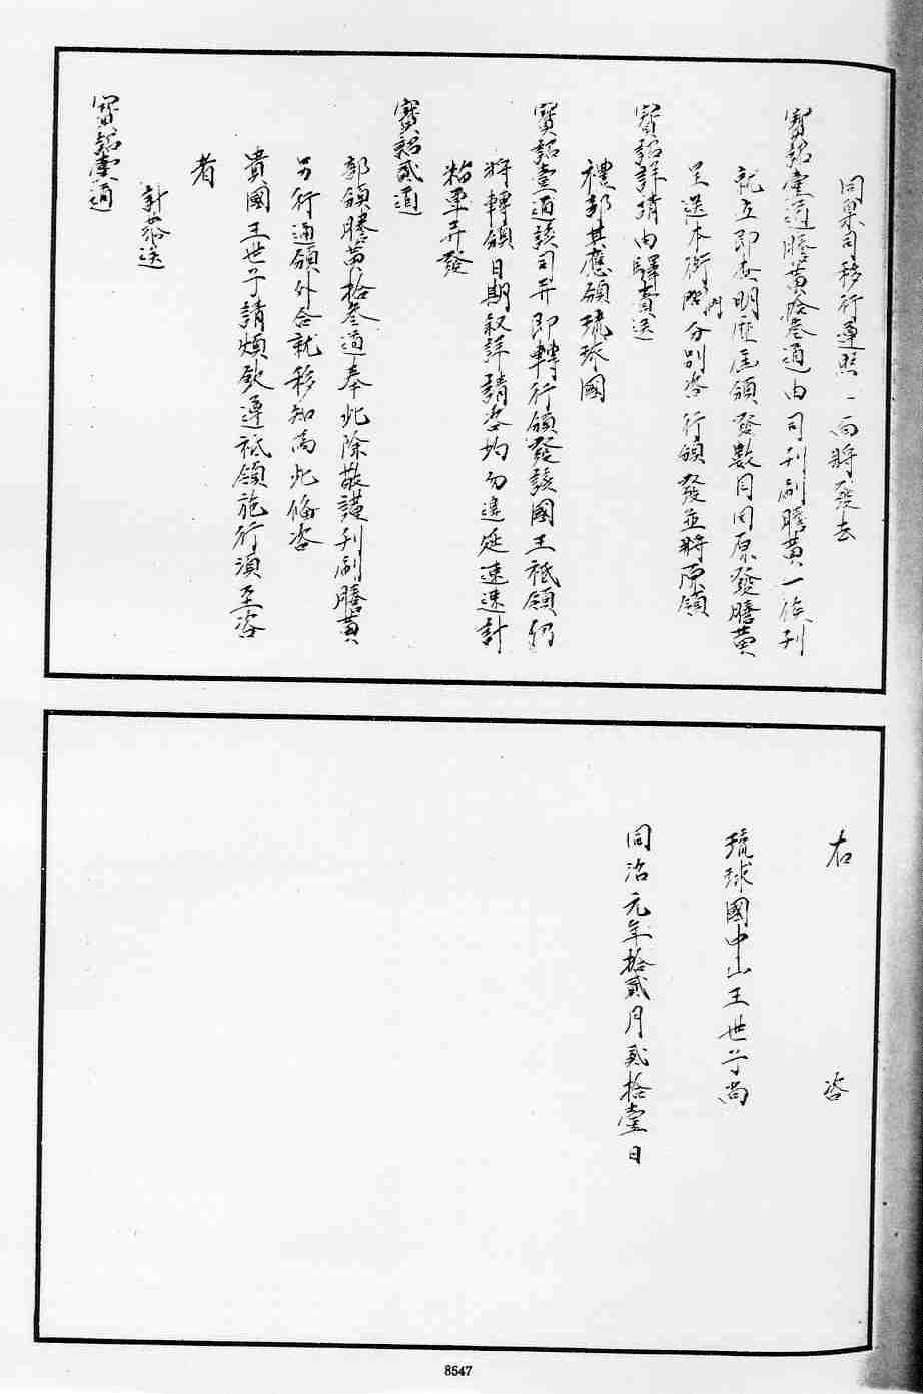 同臬司移行遵照一面將發去
寶詔壹通謄黃拾叁通由司刊刷謄黃一俟刊
就立即查明歷屆頒發數目同原發謄黃
呈送本衙門分別咨行頒發並將原領
寶詔詳請由驛賫送
禮部其應頒琉球國
寶詔壹通該司并即轉行頒發該國王祗領仍
將轉頒日期敘詳請咨均勿違延速速計
粘單并發
寶詔貳通
部頒謄黃拾叁通奉此除敬謹刊刷謄黃
另行通頒外合就移知為此備咨
貴國王世子請煩欽遵祗領施行須至咨
者
計恭送
寶詔壹通
右 咨
琉球國中山王世子尚
同治元年拾貳月貳拾壹日
8547